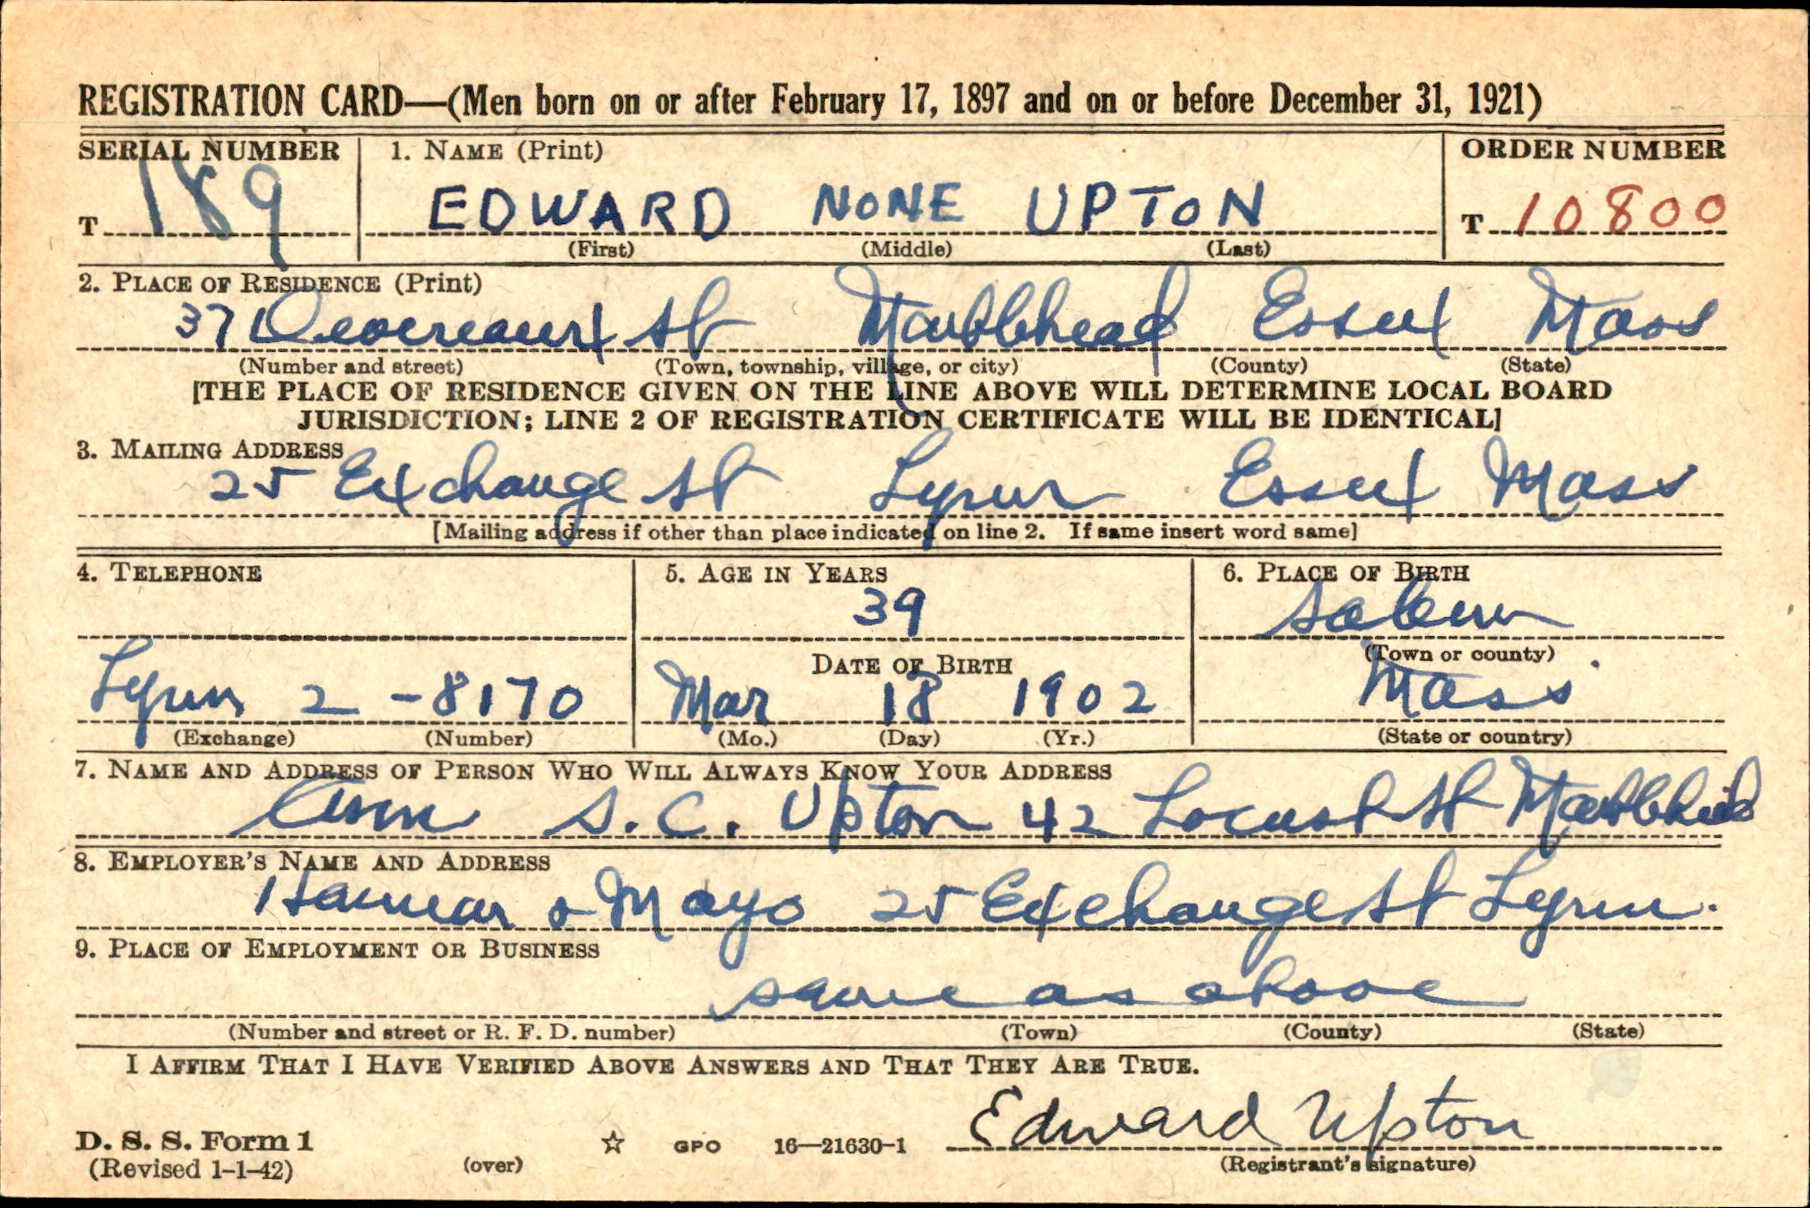 REGISTRATION CARD—(Men born on or after February 17, 1897 and on or before December 31, 1921)
SERIAL NUMBER 1. NAME (Print) ORDER NUMBER
T 189 EDWARD NONE UPTON T 10800
(First) (Middle) (Last)
2. PLACE OF RESIDENCE (Print)
37 Devereaux St Marblehead Essex Mass
(Number and street) (Town, township, village, or city) (County) (State)
[THE PLACE OF RESIDENCE GIVEN ON THE LINE ABOVE WILL DETERMINE LOCAL BOARD
JURISDICTION; LINE 2 OF REGISTRATION CERTIFICATE WILL BE IDENTICAL]
3. MAILING ADDRESS
25 Exchange St Lynn Essex Mass
[Mailing address if other than place indicated on line 2. If same insert word same]
4. TELEPHONE 5. AGE IN YEARS 6. PLACE OF BIRTH
39 Salem
DATE OF BIRTH (Town or county)
Lynn 2 -8170 Mar 18 1902 Mass
(Exchange) (Number) (Mo.) (Day) (Yr.) (State or country)
7. NAME AND ADDRESS OF PERSON WHO WILL ALWAYS KNOW YOUR ADDRESS
S. C. Upton 42 Locust St Marblehead
8. EMPLOYER'S NAME AND ADDRESS
& Mayo 25 Exchange St Lynn.
9. PLACE OF EMPLOYMENT OR BUSINESS
same as above
(Number and street or R. F. D. number) (Town) (County) (State)
I AFFIRM THAT I HAVE VERIFIED ABOVE ANSWERS AND THAT THEY ARE TRUE.
Edward Upton
D. S. S. Form 1 ☆ GPO 16—21630-1
(Revised 1-1-42) (over) (Registrant's signature)